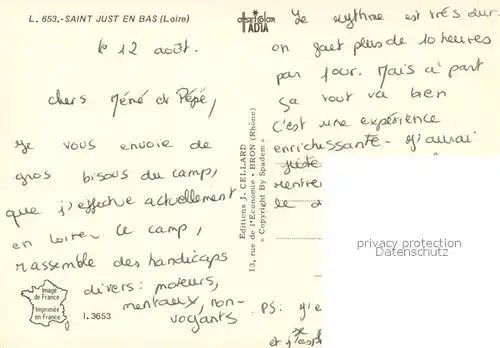 L. 653.-SAINT JUST EN BAS (Loire)
le 12 août.
chers Mémé et Pépé,
Je vous envoie de
gros bisous du camp,
que j'effectue actuellement
en Loire. Le camp,
rassemble des handicaps
divers: moteurs,
mentaux, non-
voyants
Image
de France
Imprimée
en France
I. 3653
OFFSET COLOR
IADIA
Editions J. CELLARD
13, rue de l'Economie - BRON (Rhône)
« Copyright By Spadem »
Le rythme est très dur.
on fait plus de 10 heures
par jour. Mais à part
ça tout va bien
C'est une expérience
enrichissante - J'aurai
rentrer
le
privacy protection
ansichtskarten-center.de
PS: j'e
et j'esp